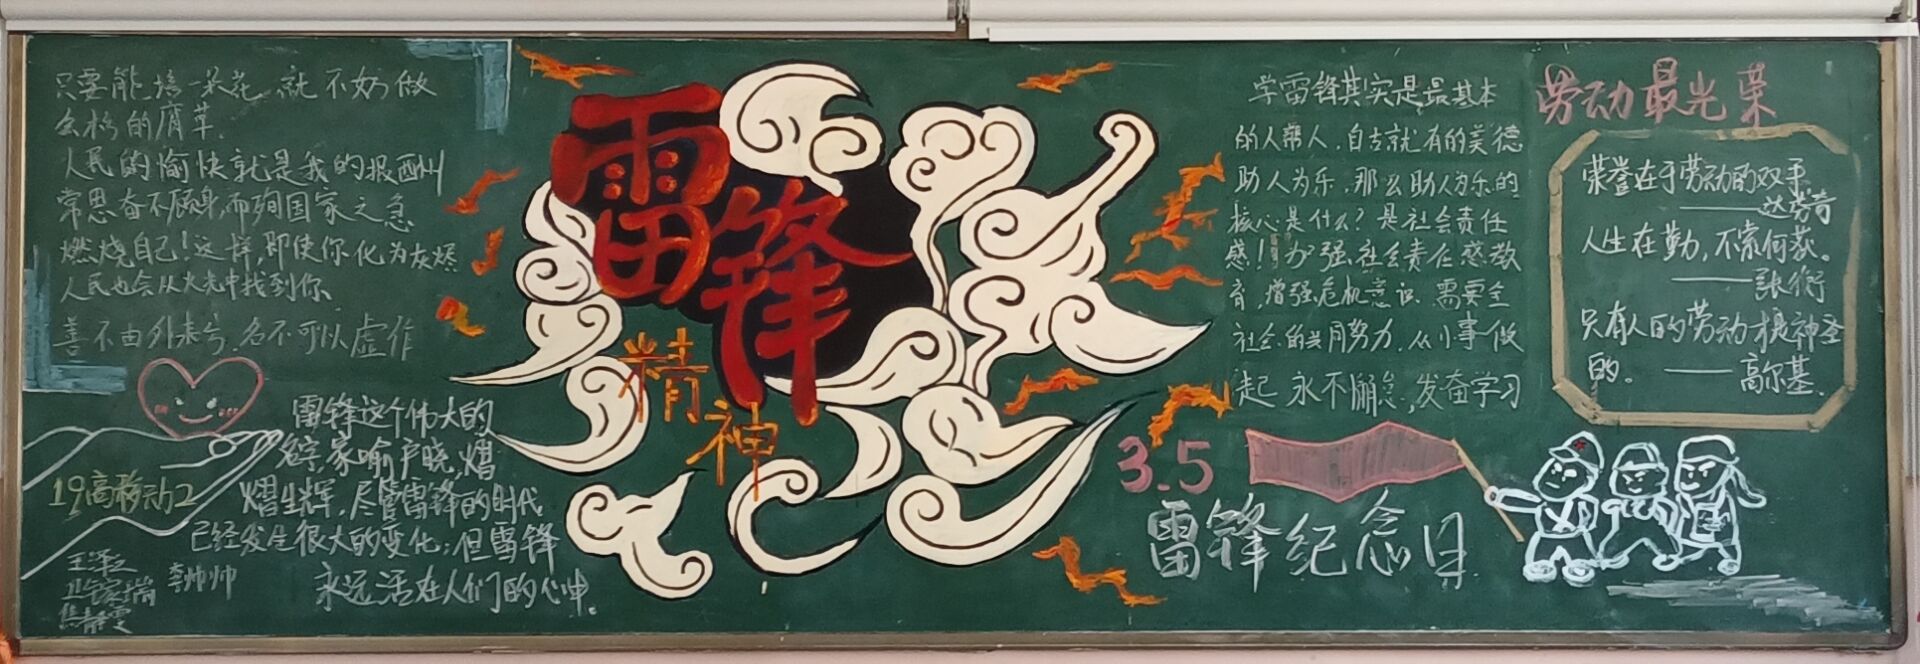 只要能培一朵花,就不妨做
会朽的腐草.
人民的愉快就是我的报酬
常思奋不顾身,而殉国家之急
燃烧自己!这样,即使你化为灰烬
人民也会从火光中找到你、
善不由外来兮,名不可以虚作
雷锋这个伟大的
名字,家喻户晓,熠
熠生辉,尽管雷锋的时代
已经发生很大的变化;但雷锋
永远活在人们的心中。
19高移动2
李帅帅
雷锋
精神
学雷锋其实是最基本
的人帮人,自古就有的美德
助人为乐,那么助人为乐的
核心是什么?是社会责任
感!加强社会责任感教
育,增强危机意识、需要全
社会的共同努力,从小事做
起 永不懈怠,发奋学习
3.5
雷锋纪念日
劳动最光荣
荣誉在于劳动的双手
——达芬奇
人生在勤,不索何获。
——张衡
只有人的劳动才是神圣
的。——高尔基.